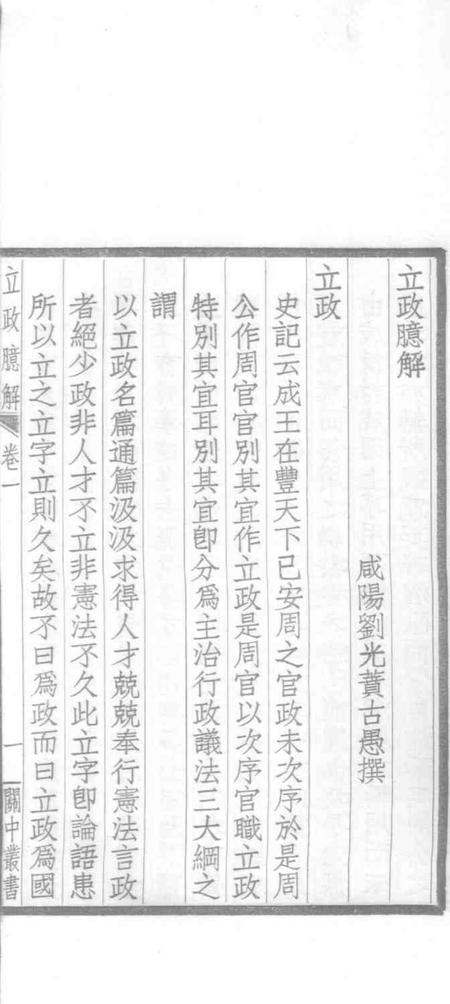 立政臆解
咸陽劉光蕡古愚撰
立政
史記云成王在豐天下已安周之官政未次序於是周
公作周官官別其宜作立政是周官以次序官職立政
特別其宜耳別其宜卽分爲主治行政議法三大綱之
謂
以立政名篇通篇汲汲求得人才兢兢奉行憲法言政
者絕少政非人才不立非憲法不久此立字卽論語患
所以立之立字立則久矣故不曰爲政而曰立政爲國
立政臆解 卷一 一 關中叢書